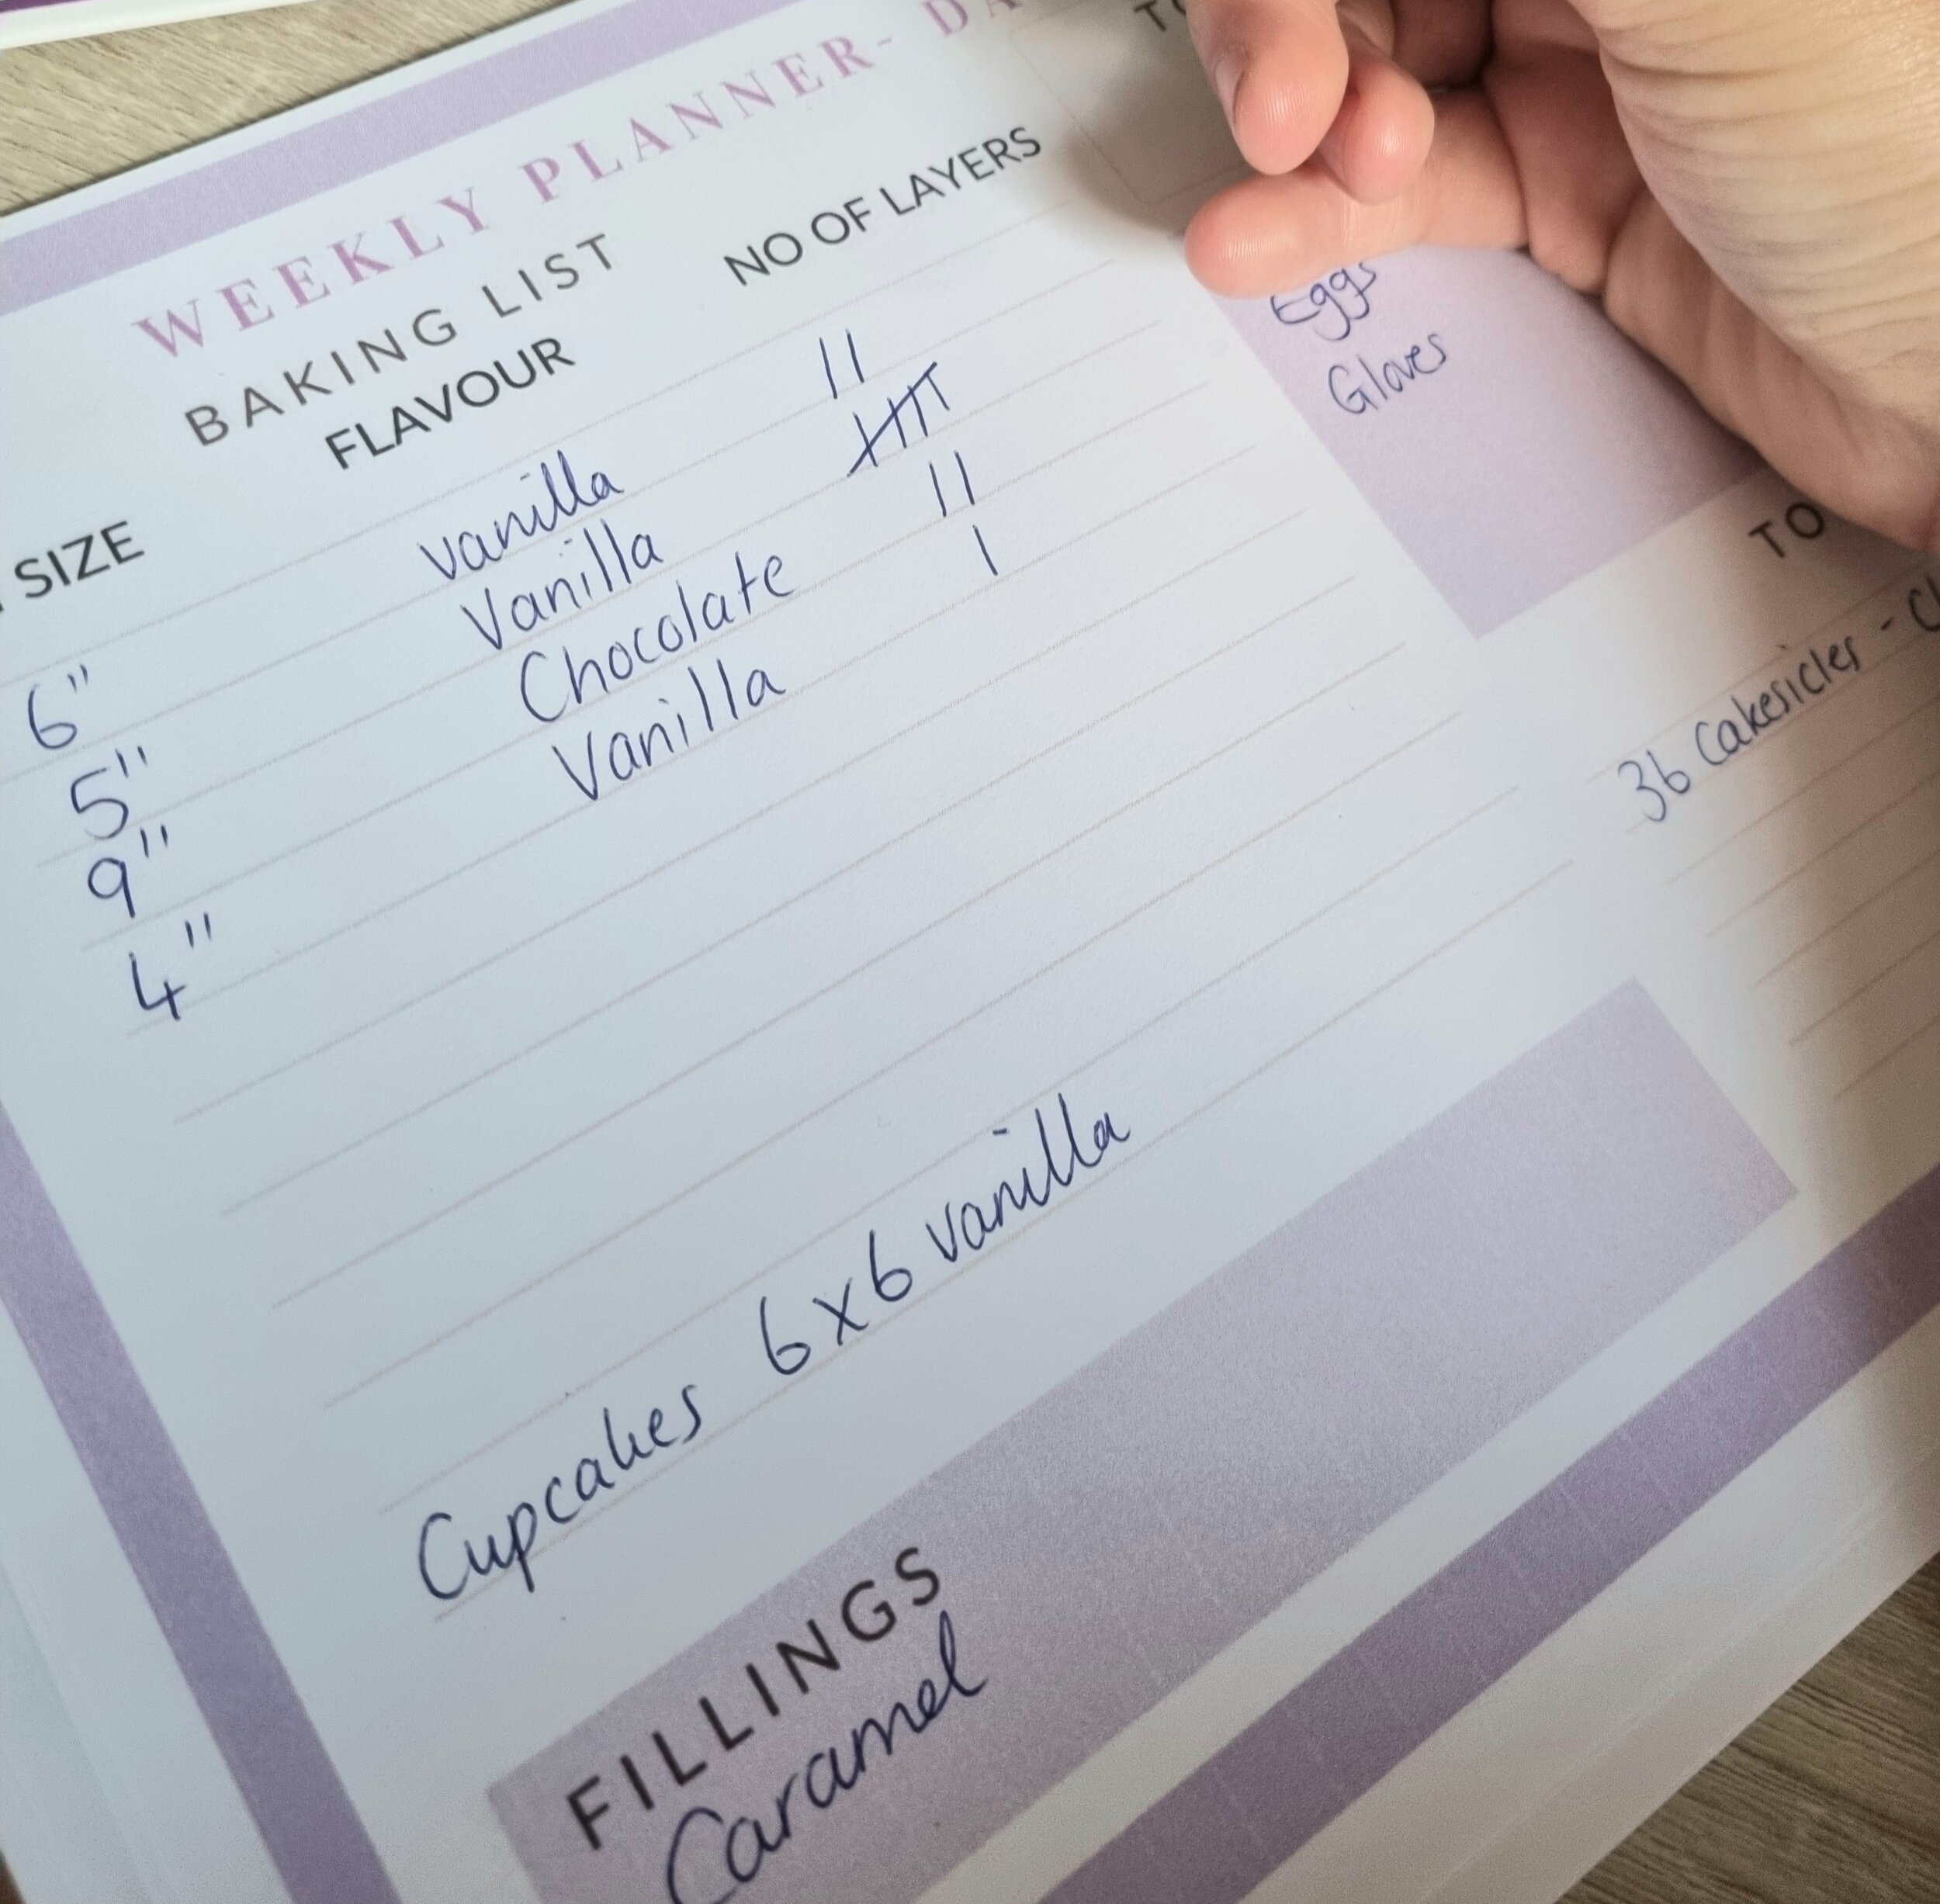 WEEKLY PLANNER- DA
BAKING LIST
SIZE FLAVOUR NO OF LAYERS
6" vanilla II
5" Vanilla 卌
9" Chocolate II
4" Vanilla I
Cupcakes 6x6 vanilla
FILLINGS
Caramel
Eggs
Gloves
TO
36 Cakesicles -